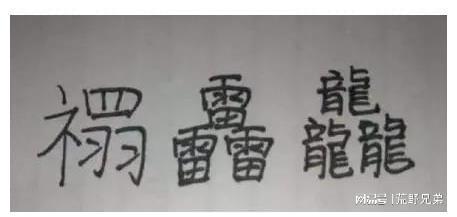 禤 靐 龘
搜狐号@荒野兄弟